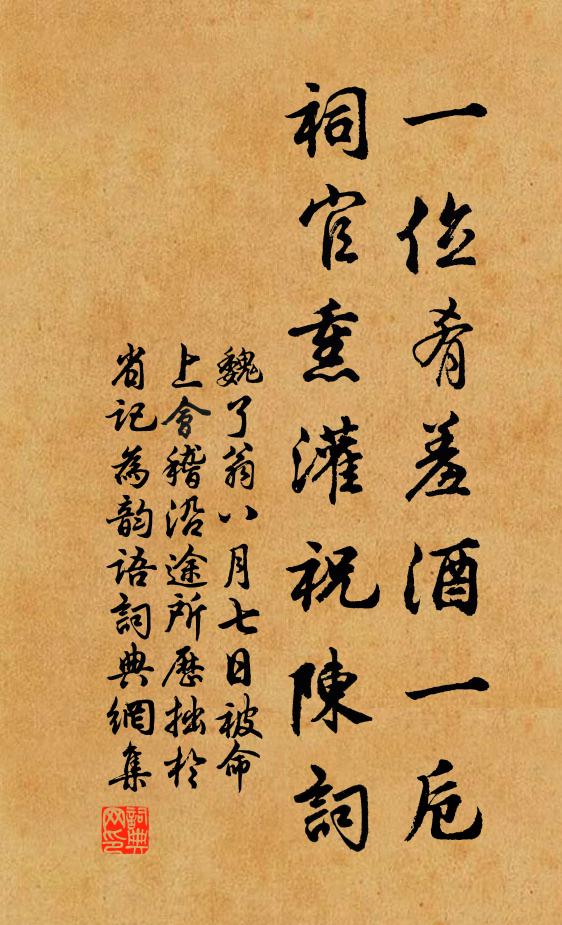 一位肴羞酒一卮
祠官熏灌祝陳詞
魏了翁八月七日被命
上會稽沿途所歷拙於
省記為韵語詞典網集
詞典网印